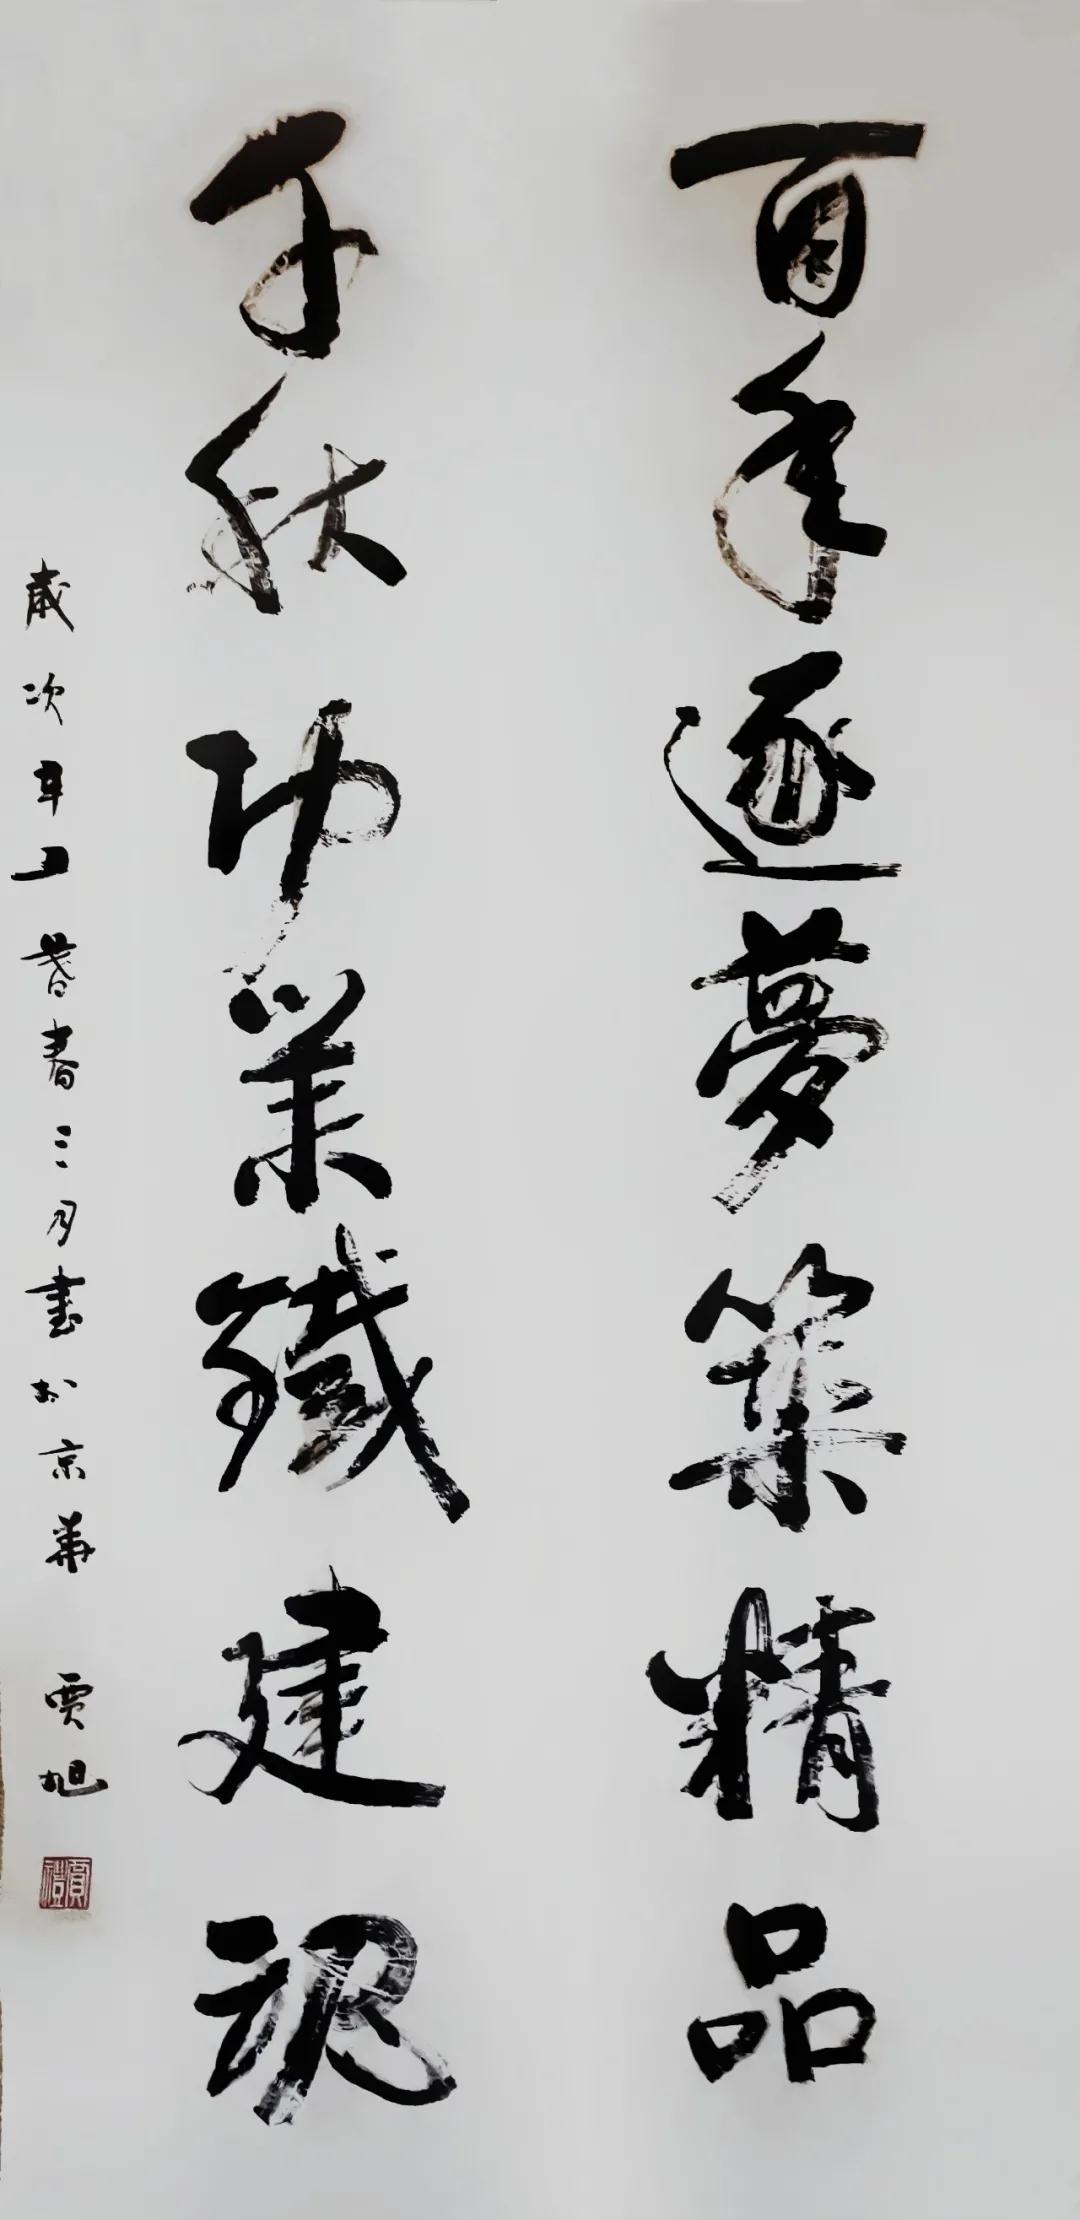 百年逐夢築精品
千秋功業鐵建魂
歲次辛丑暮春三月書於京華
賈旭